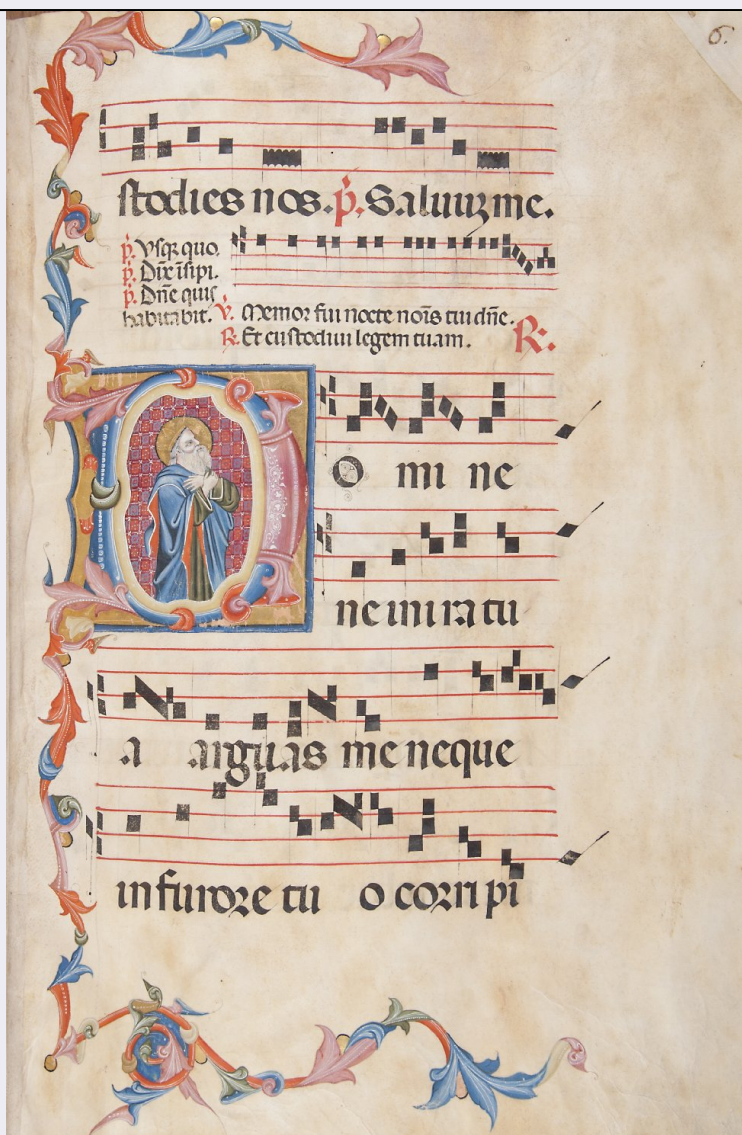 6.
stodies nos. p̄. Saluūz me.
p̄. Vsq̨ quo.
p̄. Dix̄ īsipi.
p̄. Dn̄e quis
habitabit. V̇. Memor fui nocte nōis tui dn̄e.
R. Et custodiui legem tuam. R:.
D O mi ne
ne in ira tu
a arguas me neque
in furore tu o corripi